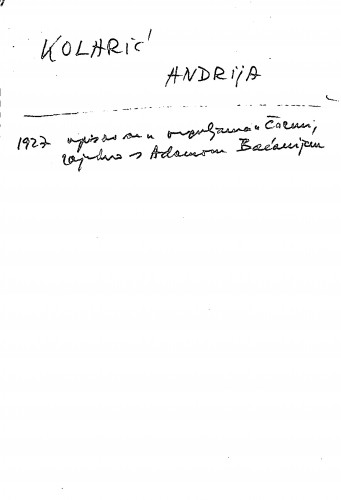 KOLARIĆ
ANDRIJA
1927 upisao se u orguljama u Čazmi,
zajedno s Adamom Baćanijem